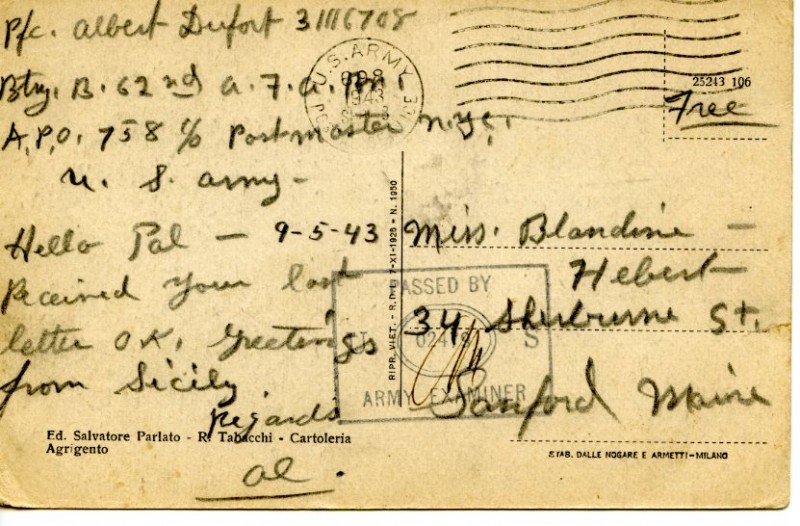 Pfc. Albert Dufort 31116708
Btry. B. 62nd A.F.A.
A.P.O. 758 c/o Postmaster N.Y.C.
U. S. Army -
U.S. ARMY
1943
25243 106
Free
Hello Pal - 9-5-43
Received your last
letter OK. Greetings
from Sicily
Regards
Al.
Miss. Blandine -
Hebert
34 Sherburne St.
Sanford Maine
PASSED BY
U S
ARMY EXAMINER
RIPR. VIET. - R.D.L. 7-XI-1925 - N. 1950
Ed. Salvatore Parlato - R. Tabacchi - Cartoleria
Agrigento
STAB. DALLE NOGARE E ARMETTI-MILANO